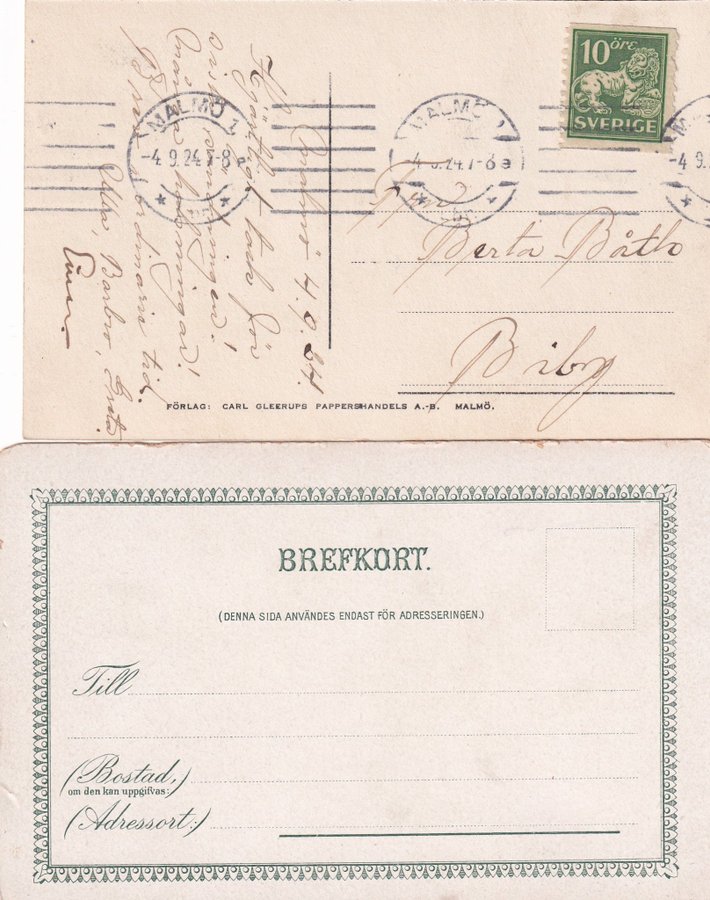 10 ÖRE
SVERIGE
MALMÖ 1
-4.9.24.7-8
MALMÖ 1
-4.9.24.7-8
-4.9.2
Malmö 4.9.24.
Hjärtligt tack för
vist
många
ordinarie tid.
Barbro,
Berta Båth
Biby
FÖRLAG: CARL GLEERUPS PAPPERSHANDELS A.-B. MALMÖ.
BREFKORT.
(DENNA SIDA ANVÄNDES ENDAST FÖR ADRESSERINGEN.)
Till
(Bostad,)
om den kan uppgifvas:
(Adressort:)